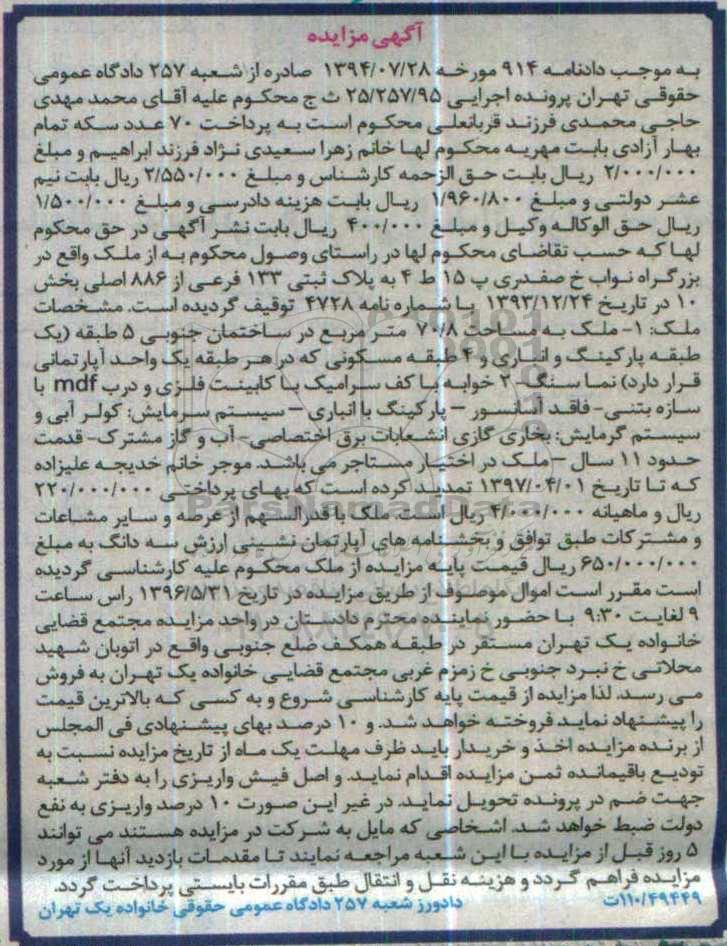 آگهی مزایده
به موجب دادنامه ۹۱۴ مورخه ۱۳۹۴/۰۷/۲۸ صادره از شعبه ۲۵۷ دادگاه عمومی
حقوقی تهران پرونده اجرایی ۲۵/۲۵۷/۹۵ ث ج محکوم علیه آقای محمد مهدی
حاجی محمدی فرزند قربانعلی محکوم است به پرداخت ۷۰ عدد سکه تمام
بهار آزادی بابت مهریه محکوم لها خانم زهرا سعیدی نژاد فرزند ابراهیم و مبلغ
۲/۰۰۰/۰۰۰ ریال بابت حق الزحمه کارشناس و مبلغ ۲/۵۵۰/۰۰۰ ریال بابت نیم
عشر دولتی و مبلغ ۱/۹۶۰/۸۰۰ ریال بابت هزینه دادرسی و مبلغ ۱/۵۰۰/۰۰۰
ریال حق الوکاله وکیل و مبلغ ۴۰۰/۰۰۰ ریال بابت نشر آگهی در حق محکوم
لها که حسب تقاضای محکوم لها در راستای وصول محکوم به از ملک واقع در
بزرگراه نواب خ صفدری پ ۱۵ ط ۴ به پلاک ثبتی ۱۳۳ فرعی از ۸۸۶ اصلی بخش
۱۰ در تاریخ ۱۳۹۳/۱۲/۲۴ با شماره نامه ۴۷۲۸ توقیف گردیده است. مشخصات
ملک: ۱- ملک به مساحت ۷۰/۸ متر مربع در ساختمان جنوبی ۵ طبقه (یک
طبقه پارکینگ و انباری و ۴ طبقه مسکونی که در هر طبقه یک واحد آپارتمانی
قرار دارد) نما سنگ- ۲ خوابه با کف سرامیک با کابینت فلزی و درب mdf با
سازه بتنی- فاقد آسانسور – پارکینگ با انباری – سیستم سرمایش: کولر آبی و
سیستم گرمایش: بخاری گازی انشعابات برق اختصاصی- آب و گاز مشترک- قدمت
حدود ۱۱ سال – ملک در اختیار مستاجر می باشد. موجر خانم خدیجه علیزاده
که تا تاریخ ۱۳۹۷/۰۴/۰۱ تمدید کرده است که بهای پرداختی ۲۲۰/۰۰۰/۰۰۰
ریال و ماهیانه ۴/۰۰۰/۰۰۰ ریال است. ملک با قدرالسهم از عرصه و سایر مشاعات
و مشترکات طبق توافق و بخشنامه های آپارتمان نشینی ارزش سه دانگ به مبلغ
۶۵۰/۰۰۰/۰۰۰ ریال قیمت پایه مزایده از ملک محکوم علیه کارشناسی گردیده
است مقرر است اموال موصوف از طریق مزایده در تاریخ ۱۳۹۶/۵/۳۱ راس ساعت
۹ لغایت ۹:۳۰ با حضور نماینده محترم دادستان در واحد مزایده مجتمع قضایی
خانواده یک تهران مستقر در طبقه همکف ضلع جنوبی واقع در اتوبان شهید
محلاتی خ نبرد جنوبی خ زمزم غربی مجتمع قضایی خانواده یک تهران به فروش
می رسد. لذا مزایده از قیمت پایه کارشناسی شروع و به کسی که بالاترین قیمت
را پیشنهاد نماید فروخته خواهد شد. و ۱۰ درصد بهای پیشنهادی فی المجلس
از برنده مزایده اخذ و خریدار باید ظرف مهلت یک ماه از تاریخ مزایده نسبت به
تودیع باقیمانده ثمن مزایده اقدام نماید. و اصل فیش واریزی را به دفتر شعبه
جهت ضم در پرونده تحویل نماید. در غیر این صورت ۱۰ درصد واریزی به نفع
دولت ضبط خواهد شد. اشخاصی که مایل به شرکت در مزایده هستند می توانند
۵ روز قبل از مزایده با این شعبه مراجعه نمایند تا مقدمات بازدید آنها از مورد
مزایده فراهم گردد و هزینه نقل و انتقال طبق مقررات بایستی پرداخت گردد.
دادورز شعبه ۲۵۷ دادگاه عمومی حقوقی خانواده یک تهران
۱۱۰/۴۹۴۴۹ت
ParsNamadData